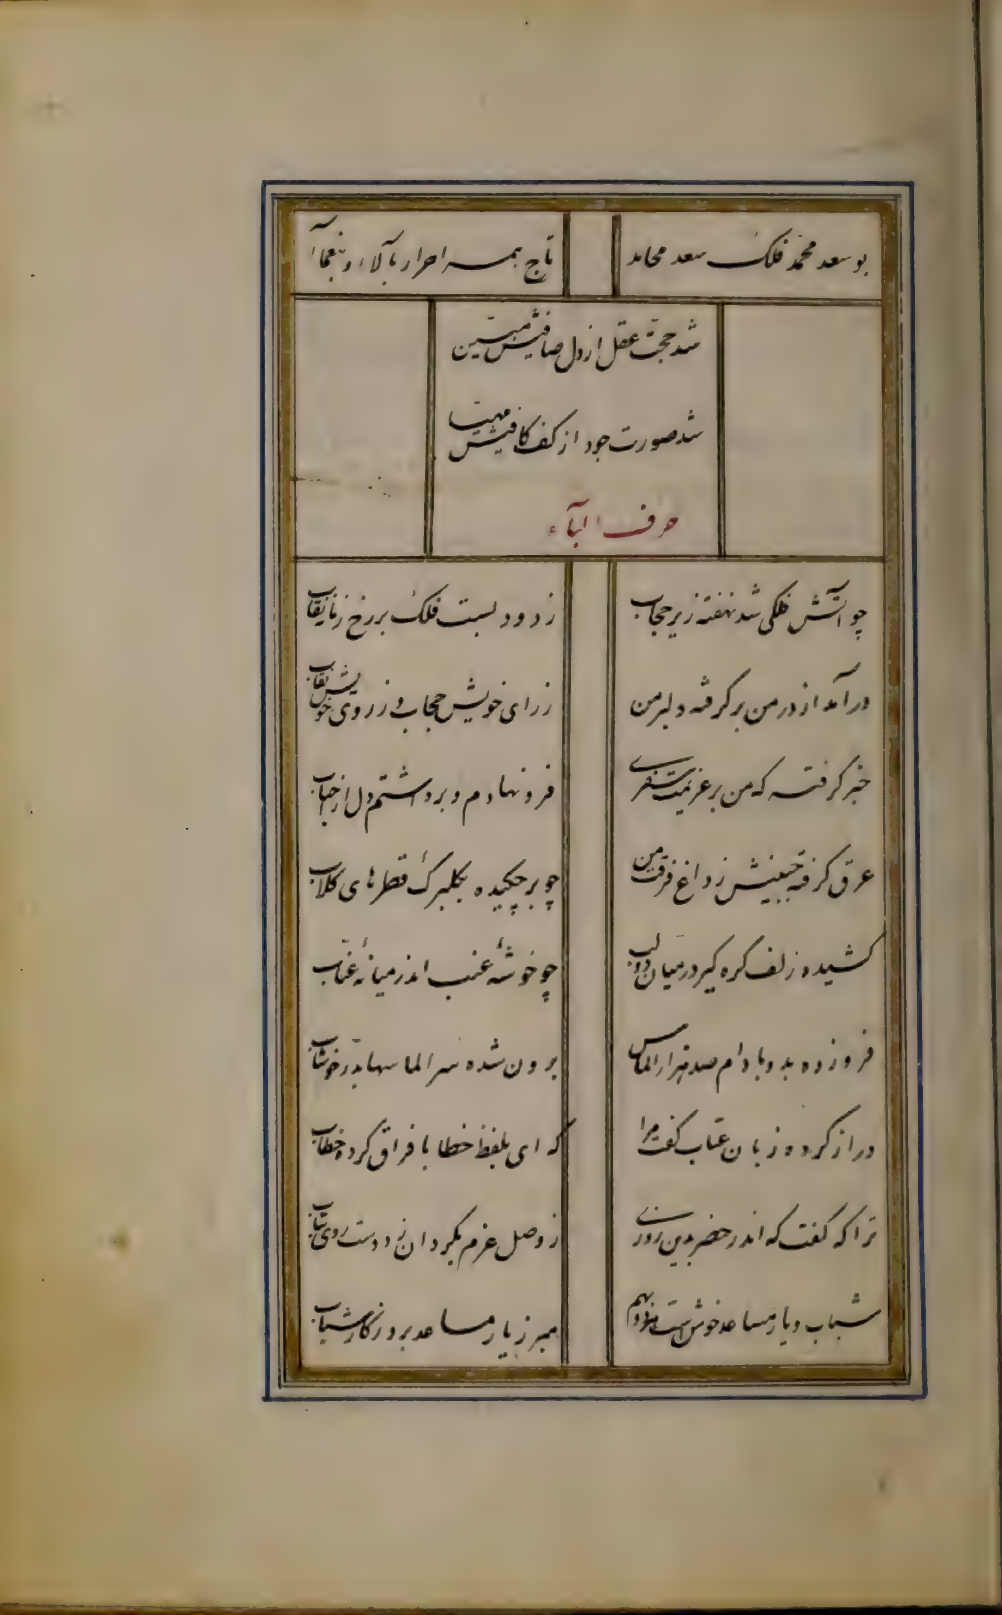 بو سعد محمد فلک سعد محامد
تاج همه احرار بآلاء و بنعمآء
شد حجت عقل از دل صافیش مبین
شد صورت جود از کف کافیش مهیا
حرف البآء
چو آتش فلکی شد نهفته زیر حجاب
زدود بست فلک بر رخ زمانه نقاب
درآمد از در من برگرفته دلبر من
ز رای خویش حجاب و ز روی خویش نقاب
خبر گرفته که من بر عزیمت سفری
فرو نهادم و برداشتم دل از احباب
عرق گرفته جبینش ز داغ فرقت من
چو بر چکیده بگلبرگ قطرهای گلاب
کشیده زلف گره گیر در میان دو لب
چو خوشهٔ عنب اندر میانهٔ عناب
فرو زده بدو بادام صد هزار الماس
برون شده سر الماسها بدر خوشاب
دراز کرده زبان عتاب گفت مرا
که ای بلفظ خطا با فراق کرده خطاب
ترا که گفت که اندر حضر بدین زودی
ز وصل عزم بگردان ز دوست روی بتاب
شباب و یار مساعد خوش است هر دو بهم
مبر ز یار مساعد بروزگار شباب